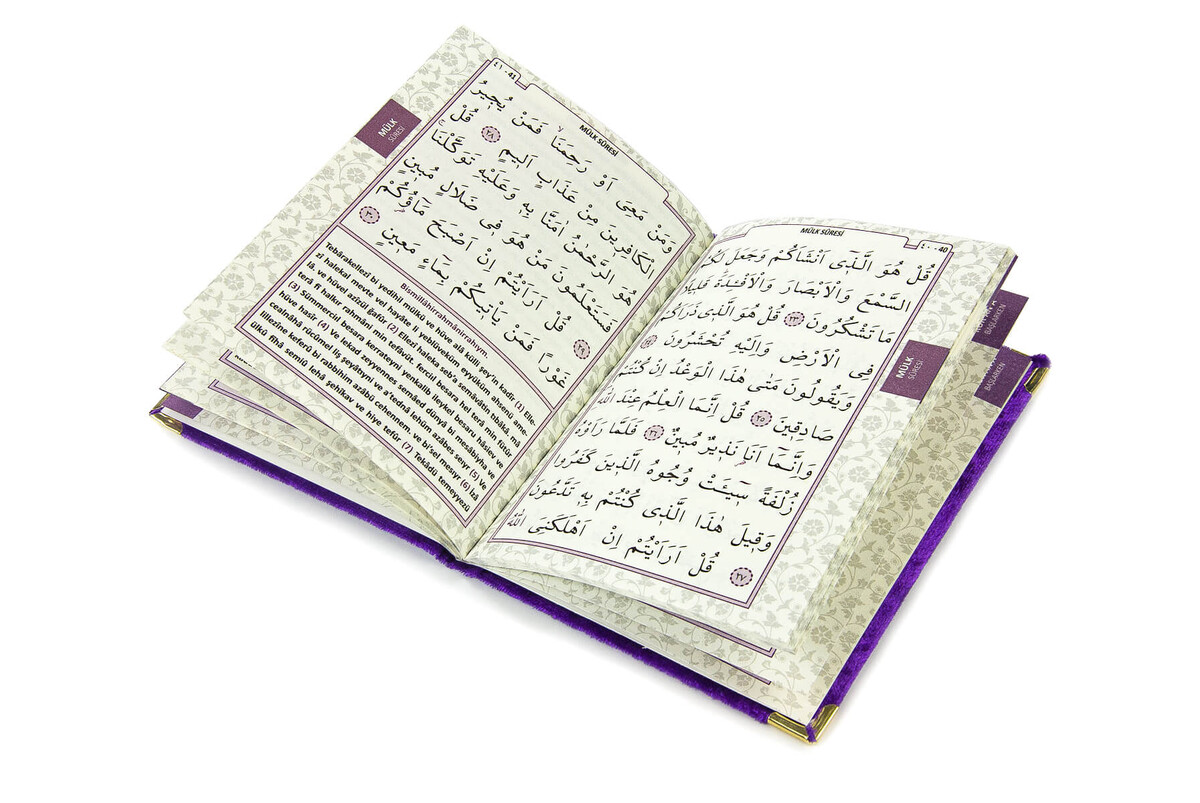 MÜLK SÛRESİ
٤٠ - 40
قُلْ هُوَ الَّذٖٓى اَنْشَاَكُمْ وَجَعَلَ لَكُمُ
السَّمْعَ وَالْاَبْصَارَ وَالْاَفْـِٔدَةَ قَلٖيلًا
مَا تَشْكُرُونَ ٢٣ قُلْ هُوَ الَّذٖى ذَرَاَكُمْ
فِى الْاَرْضِ وَاِلَيْهِ تُحْشَرُونَ ٢٤
وَيَقُولُونَ مَتٰى هٰذَا الْوَعْدُ اِنْ كُنْتُمْ
صَادِقٖينَ ٢٥ قُلْ اِنَّمَا الْعِلْمُ عِنْدَ اللّٰهِ
وَاِنَّمَٓا اَنَا۬ نَذٖيرٌ مُبٖينٌ ٢٦ فَلَمَّا رَاَوْهُ
زُلْفَةً سٖٓيـَٔتْ وُجُوهُ الَّذٖينَ كَفَرُوا
وَقٖيلَ هٰذَا الَّذٖى كُنْتُمْ بِهٖ تَدَّعُونَ
٢٧ قُلْ اَرَاَيْتُمْ اِنْ اَهْلَكَنِىَ اللّٰهُ
MÜLK
SÛRESİ
BAŞLARKEN
BAŞLARKEN
٤١ - 41
MÜLK SÛRESİ
وَمَنْ مَعِىَ اَوْ رَحِمَنَاۙ فَمَنْ يُجٖيرُ
الْكَافِرٖينَ مِنْ عَذَابٍ اَلٖيمٍ ٢٨ قُلْ
هُوَ الرَّحْمٰنُ اٰمَنَّا بِهٖ وَعَلَيْهِ تَوَكَّلْنَاۚ
فَسَتَعْلَمُونَ مَنْ هُوَ فٖى ضَلَالٍ مُبٖينٍ
٢٩ قُلْ اَرَاَيْتُمْ اِنْ اَصْبَحَ مَٓاؤُ۬كُمْ
غَوْرًا فَمَنْ يَاْتٖيكُمْ بِمَٓاءٍ مَعٖينٍ ٣٠
MÜLK
SÛRESİ
Bismillâhirrahmânirrahıym.
Tebârakellezî bi yedihil mülkü ve hüve alâ külli şey'in kadîr (1) Elle-
zî halekal mevte vel hayâte li yeblüveküm eyyüküm ahsenü ame-
lâ. ve hüvel azîzül ğafûr (2) Ellezî haleka seb'a semâvâtin tıbâkâ mâ
terâ fî halkır rahmâni min tefâvüt. ferciıl besara hel terâ min fütûr
(3) Sümmerciıl besara kerrateyni yenkalib ileykel besaru hâsiev ve
hüve hasîr (4) Ve lekad zeyyennes semâed dünyâ bi mesâbiyha ve
cealnâhâ rücûmel liş şeyâtıyni ve a'tednâ lehüm azâbes seıyr (5) Ve
lillezîne keferû bi rabbihim azâbü cehennem. ve bi'sel mesıyr (6) İzâ
ülkû fîhâ semiû lehâ şehîkav ve hiye tefûr (7) Tekâdü temeyyezü